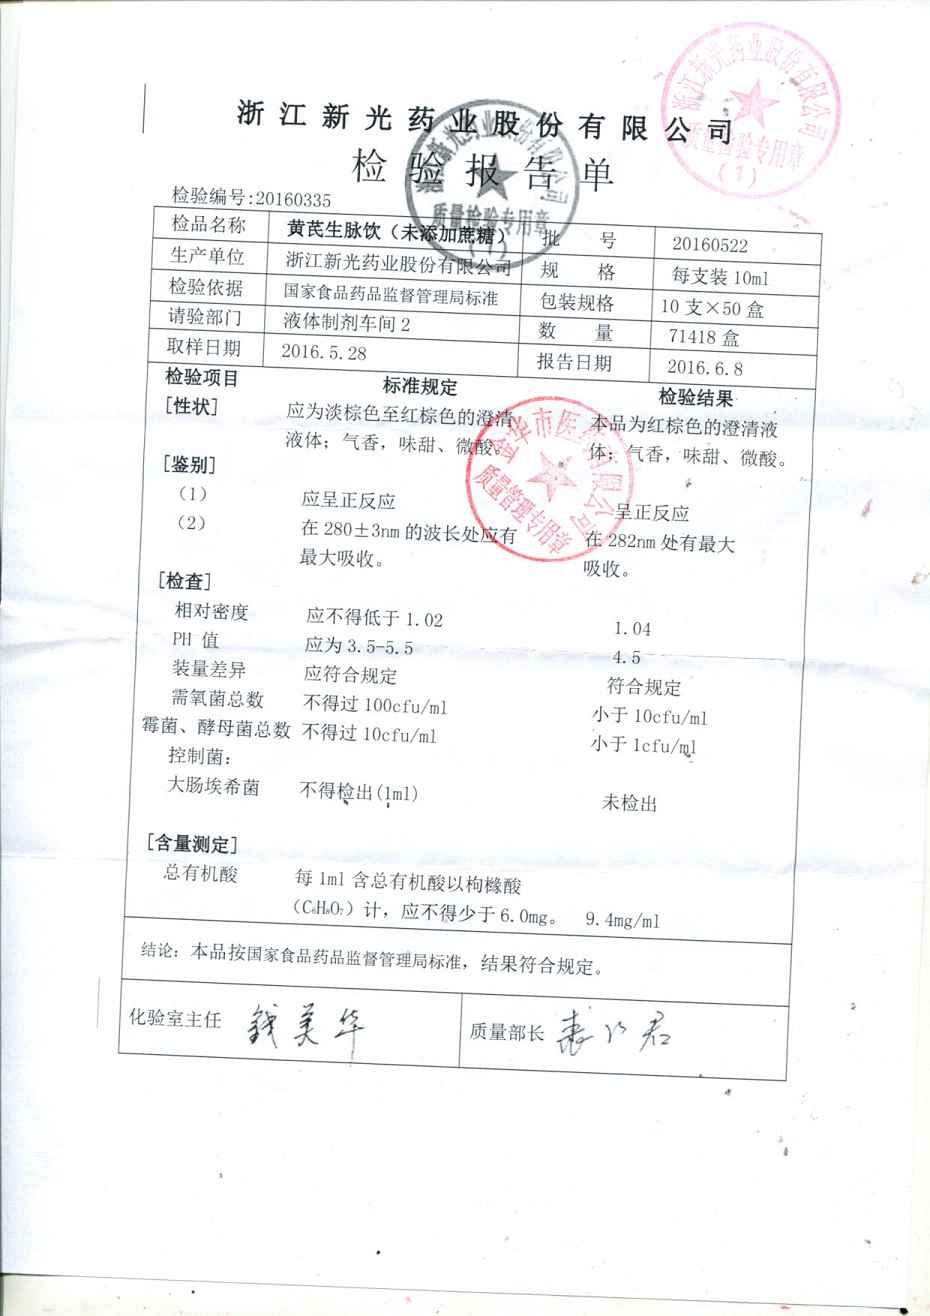 浙江新光药业股份有限公司
检验报告单
检验编号:20160335
检品名称 黄芪生脉饮（未添加蔗糖） 批 号 20160522
生产单位 浙江新光药业股份有限公司 规 格 每支装 10ml
检验依据 国家食品药品监督管理局标准 包装规格 10 支×50 盒
请验部门 液体制剂车间 2 数 量 71418 盒
取样日期 2016.5.28 报告日期 2016.6.8
检验项目 标准规定 检验结果
[性状] 应为淡棕色至红棕色的澄清 本品为红棕色的澄清液
液体；气香，味甜、微酸。 体；气香，味甜、微酸。
[鉴别]
（1） 应呈正反应 呈正反应
（2） 在 280±3nm 的波长处应有 在 282nm 处有最大
最大吸收。 吸收。
[检查]
相对密度 应不得低于 1.02 1.04
PH 值 应为 3.5-5.5 4.5
装量差异 应符合规定 符合规定
需氧菌总数 不得过 100cfu/ml 小于 10cfu/ml
霉菌、酵母菌总数 不得过 10cfu/ml 小于 1cfu/ml
控制菌：
大肠埃希菌 不得检出(1ml) 未检出
[含量测定]
总有机酸 每 1ml 含总有机酸以枸橼酸
（C₆H₈O₇）计，应不得少于 6.0mg。 9.4mg/ml
结论：本品按国家食品药品监督管理局标准，结果符合规定。
化验室主任 钱美华 质量部长
浙江新光药业股份有限公司
质量检验专用章
（1）
浙江新光药业股份有限公司
质量检验专用章
（1）
金华市医药有限公司
质量管理专用章